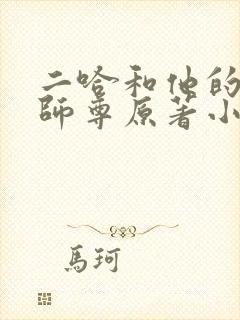 二哈和他的
師尊原著小
馬珂